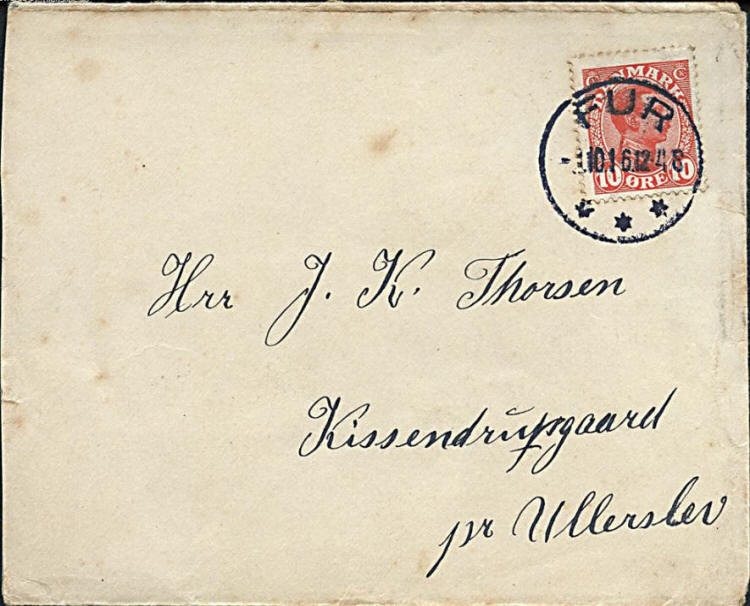 DANMARK
FUR
10.16.12-4 E
10 ØRE 10
Hrr J. K. Thorsen
Kissendrupgaard
pr Ullerslev